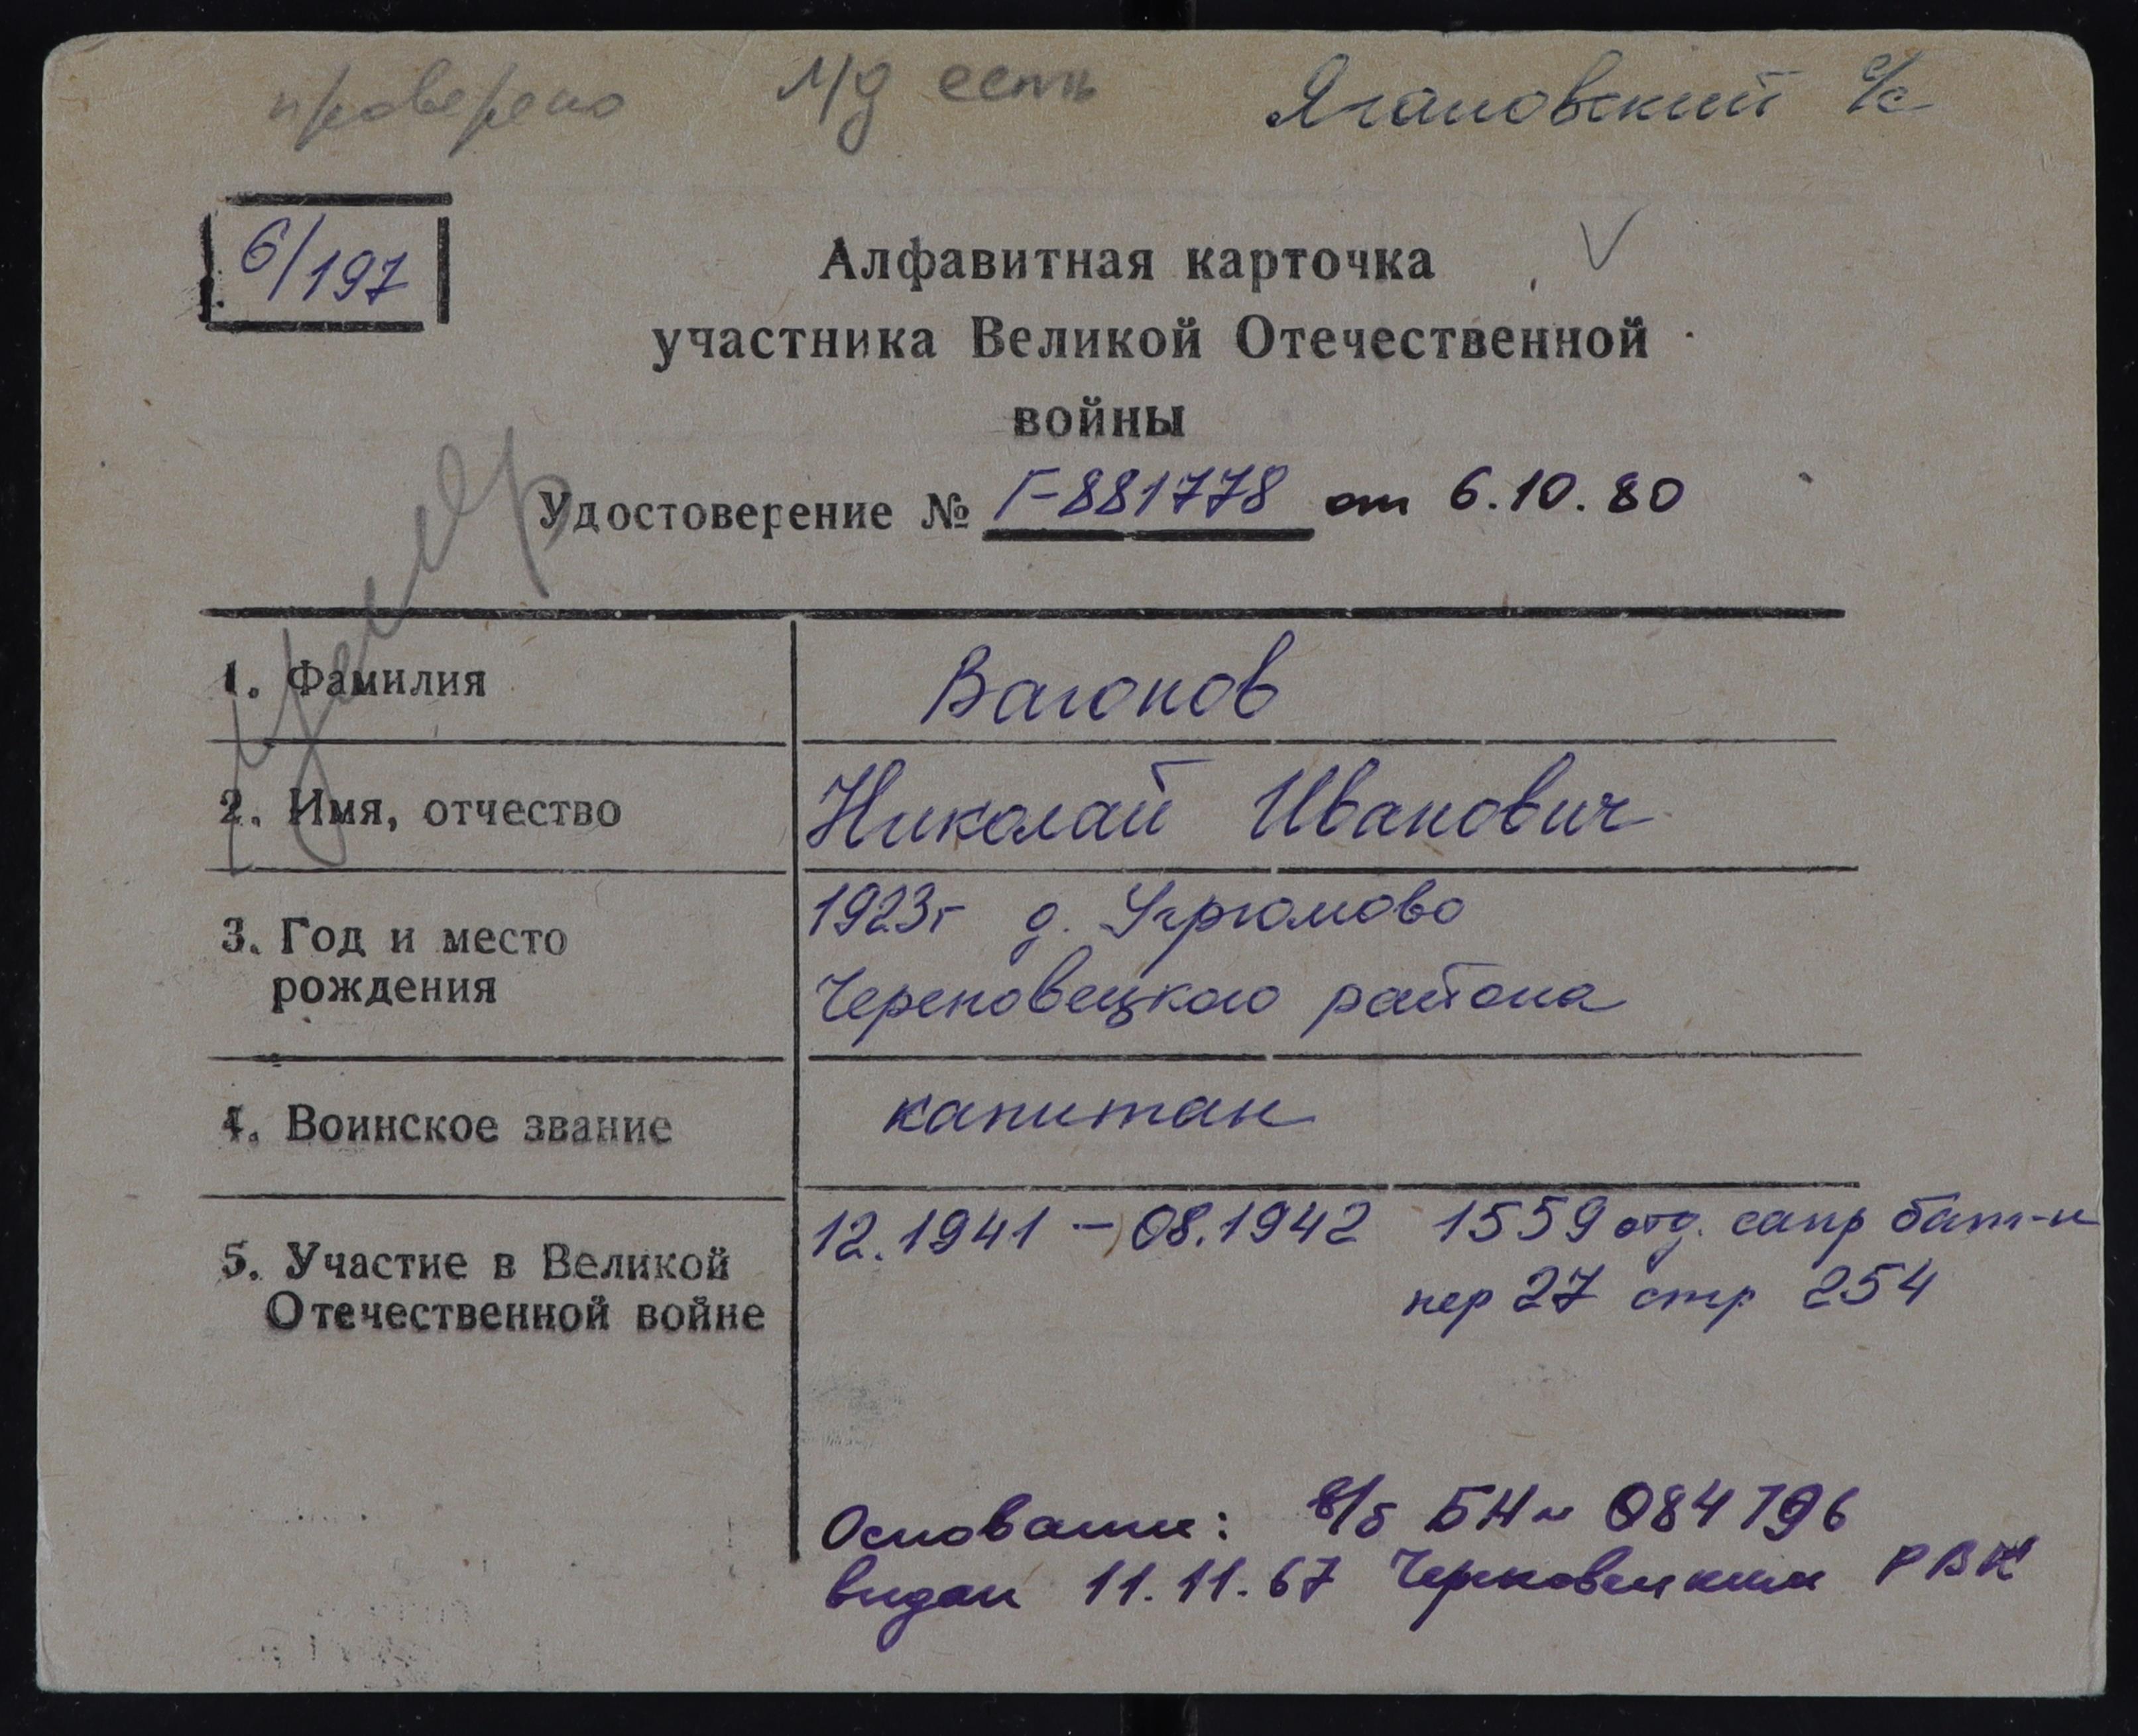 проверено  л/д есть  Ягановский с/с
6/197
Алфавитная карточка
участника Великой Отечественной
войны
Удостоверение № Г-881778 от 6.10.80
умер
1. Фамилия  Вагонов
2. Имя, отчество  Николай Иванович
3. Год и место  1923г д. Угрюмово
рождения  Череповецкого района
4. Воинское звание  капитан
12.1941 – 08.1942  1559 отд. сапр бат-н
5. Участие в Великой  пер 27 стр 254
Отечественной войне
Основание: в/б БН № 084796
выдан 11.11.67 Череповецким РВК